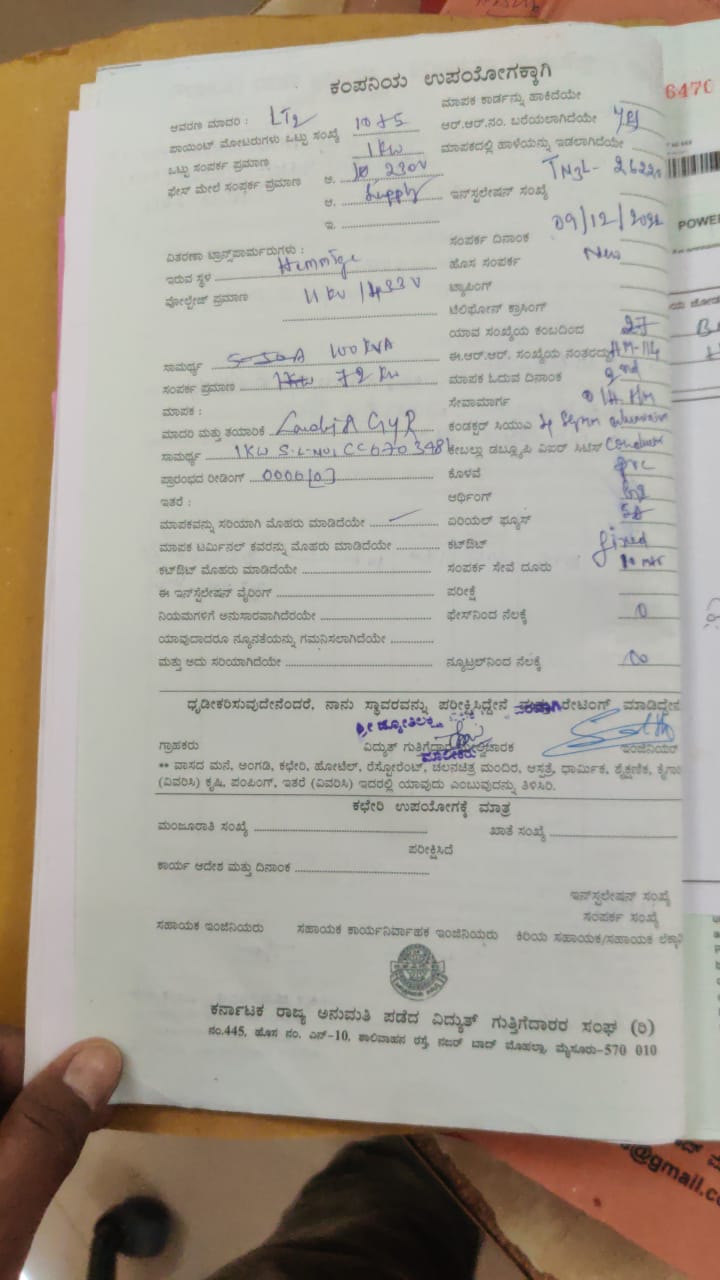 6470
ಕಂಪನಿಯ ಉಪಯೋಗಕ್ಕಾಗಿ
ಆವರಣ ಮಾದರಿ : LT2
ಮಾಪಕ ಕಾರ್ಡನ್ನು ಹಾಕಿದೆಯೇ
ಪಾಯಿಂಟ್ ಮೋಟರುಗಳು ಒಟ್ಟು ಸಂಖ್ಯೆ
ಆರ್.ಆರ್.ನಂ. ಬರೆಯಲಾಗಿದೆಯೇ yes
ಒಟ್ಟು ಸಂಪರ್ಕ ಪ್ರಮಾಣ 1kw
ಮಾಪಕದಲ್ಲಿ ಹಾಳೆಯನ್ನು ಇಡಲಾಗಿದೆಯೇ
ಫೇಸ್ ಮೇಲೆ ಸಂಪರ್ಕ ಪ್ರಮಾಣ ಅ. 230V
ಆ. Supply
ಇನ್‌ಸ್ಟಲೇಷನ್ ಸಂಖ್ಯೆ
ಇ.
ಸಂಪರ್ಕ ದಿನಾಂಕ
ವಿತರಣಾ ಟ್ರಾನ್ಸ್‌ಪಾರ್ಮರುಗಳು :
ಇರುವ ಸ್ಥಳ Hemmige
ಹೊಸ ಸಂಪರ್ಕ New
ವೋಲ್ಟೇಜ್ ಪ್ರಮಾಣ 11kv / 433V
ಟ್ಯಾಪಿಂಗ್
ಟೆಲಿಫೋನ್ ಕ್ರಾಸಿಂಗ್
ಯಾವ ಸಂಖ್ಯೆಯ ಕಂಬದಿಂದ 27
ಸಾಮರ್ಥ್ಯ 100 KVA
ಈ.ಆರ್.ಆರ್. ಸಂಖ್ಯೆಯ ನಂತರದ್ದು HM-114
ಸಂಪರ್ಕ ಪ್ರಮಾಣ 72 kw
ಮಾಪಕ ಓದುವ ದಿನಾಂಕ 2nd
ಮಾಪಕ :
ಸೇವಾಮಾರ್ಗ
ಮಾದರಿ ಮತ್ತು ತಯಾರಿಕೆ GYR
ಕಂಡಕ್ಟರ್ ಸಿಯುಎ
ಸಾಮರ್ಥ್ಯ 1KW
ಕೇಬಲ್ಲು ಡಬ್ಲ್ಯೂಪಿ ವಿಐರ್ ಸಿಟಿಸ್ Conductor
ಪ್ರಾರಂಭದ ರೀಡಿಂಗ್
ಕೊಳವೆ pvc
ಇತರೆ :
ಆರ್ಥಿಂಗ್
ಮಾಪಕವನ್ನು ಸರಿಯಾಗಿ ಮೊಹರು ಮಾಡಿದೆಯೇ
ಏರಿಯಲ್ ಫ್ಯೂಸ್ 5A
ಮಾಪಕ ಟರ್ಮಿನಲ್ ಕವರನ್ನು ಮೊಹರು ಮಾಡಿದೆಯೇ
ಕಟ್‌ಔಟ್ fixed
ಕಟ್‌ಔಟ್ ಮೊಹರು ಮಾಡಿದೆಯೇ
ಸಂಪರ್ಕ ಸೇವೆ ದೂರು 10 mtr
ಈ ಇನ್‌ಸ್ಟಲೇಷನ್ ವೈರಿಂಗ್
ಪರೀಕ್ಷೆ
ನಿಯಮಗಳಿಗೆ ಅನುಸಾರವಾಗಿದೆರಯೇ
ಫೇಸ್‌ನಿಂದ ನೆಲಕ್ಕೆ 0
ಯಾವುದಾದರೂ ನ್ಯೂನತೆಯನ್ನು ಗಮನಿಸಲಾಗಿದೆಯೇ
ಮತ್ತು ಅದು ಸರಿಯಾಗಿದೆಯೇ
ನ್ಯೂಟ್ರಲ್‌ನಿಂದ ನೆಲಕ್ಕೆ
ಧೃಡೀಕರಿಸುವುದೇನೆಂದರೆ, ನಾನು ಸ್ಥಾವರವನ್ನು ಪರೀಕ್ಷಿಸಿದ್ದೇನೆ ರೇಟಿಂಗ್ ಮಾಡಿದ್ದೇನೆ
ಗ್ರಾಹಕರು
ವಿದ್ಯುತ್ ಗುತ್ತಿಗೆದಾರ
ಮಾಲೀಕರು
ಇಂಜಿನಿಯರ್
** ವಾಸದ ಮನೆ, ಅಂಗಡಿ, ಕಛೇರಿ, ಹೋಟೆಲ್, ರೆಸ್ಟೋರೆಂಟ್, ಚಲನಚಿತ್ರ ಮಂದಿರ, ಆಸ್ಪತ್ರೆ, ಧಾರ್ಮಿಕ, ಶೈಕ್ಷಣಿಕ,
(ವಿವರಿಸಿ) ಕೃಷಿ, ಪಂಪಿಂಗ್, ಇತರೆ (ವಿವರಿಸಿ) ಇದರಲ್ಲಿ ಯಾವುದು ಎಂಬುವುದನ್ನು ತಿಳಿಸಿರಿ.
ಕಛೇರಿ ಉಪಯೋಗಕ್ಕೆ ಮಾತ್ರ
ಮಂಜೂರಾತಿ ಸಂಖ್ಯೆ
ಖಾತೆ ಸಂಖ್ಯೆ
ಪರೀಕ್ಷಿಸಿದೆ
ಕಾರ್ಯ ಆದೇಶ ಮತ್ತು ದಿನಾಂಕ
ಇನ್‌ಸ್ಟಲೇಷನ್ ಸಂಖ್ಯೆ
ಸಂಪರ್ಕ ಸಂಖ್ಯೆ
ಸಹಾಯಕ ಇಂಜಿನಿಯರು
ಸಹಾಯಕ ಕಾರ್ಯನಿರ್ವಾಹಕ ಇಂಜಿನಿಯರು
ಕಿರಿಯ ಸಹಾಯಕ/ಸಹಾಯಕ
ಕರ್ನಾಟಕ ರಾಜ್ಯ ಅನುಮತಿ ಪಡೆದ ವಿದ್ಯುತ್ ಗುತ್ತಿಗೆದಾರರ ಸಂಘ (ರಿ)
ನಂ.445, ಹೊಸ ನಂ. ಎನ್-10, ಶಾಲಿವಾಹನ ರಸ್ತೆ, ನಜರ್ ಬಾದ್ ಮೊಹಲ್ಲಾ, ಮೈಸೂರು-570 010
POWER
@gmail.co